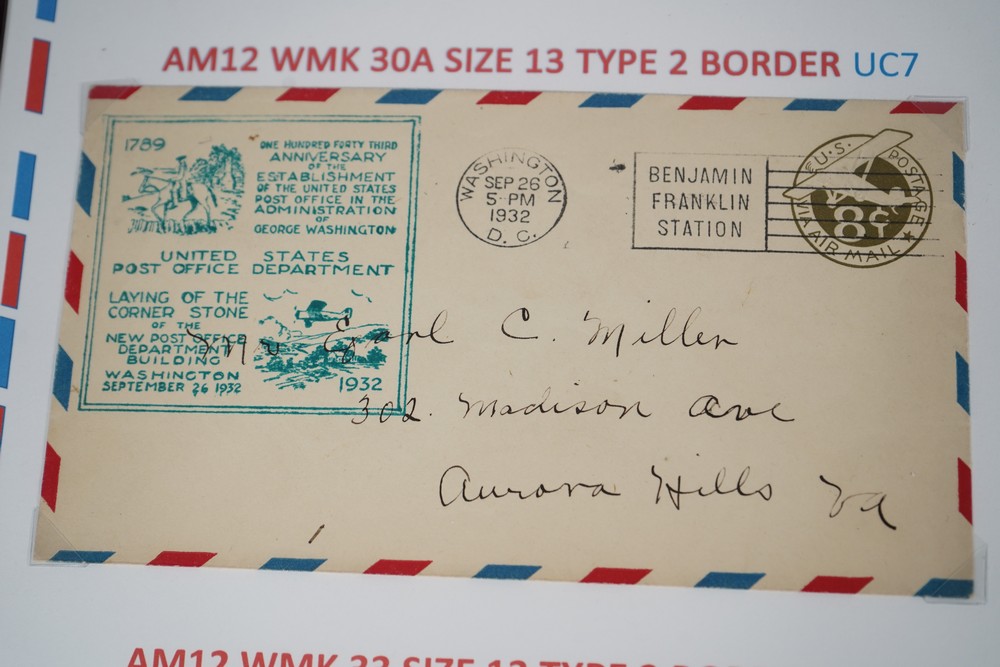 AM12 WMK 30A SIZE 13 TYPE 2 BORDER UC7
1789
ONE HUNDRED FORTY THIRD
ANNIVERSARY
OF THE
ESTABLISHMENT
OF THE UNITED STATES
POST OFFICE IN THE
ADMINISTRATION
OF
GEORGE WASHINGTON
UNITED STATES
POST OFFICE DEPARTMENT
LAYING OF THE
CORNER STONE
OF THE
NEW POST OFFICE
DEPARTMENT
BUILDING
WASHINGTON
SEPTEMBER 26 1932
1932
WASHINGTON
SEP 26
5 PM
1932
D. C.
BENJAMIN
FRANKLIN
STATION
U.S. POSTAGE
8 CT
VIA AIR MAIL
Mr Earl C. Miller
302. Madison Ave
Aurora Hills Va